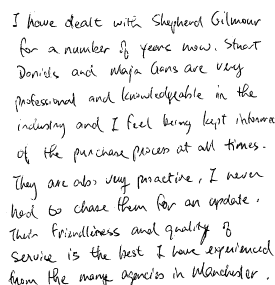 I have dealt with Shepherd Gilmour
for a number of years now. Stuart
Daniels and Maja Gans are very
professional and knowledgeable in the
industry and I feel being kept informed
of the purchase process at all times.
They are also very proactive, I never
had to chase them for an update.
Their friendliness and quality of
service is the best I have experienced
from the many agencies in Manchester.